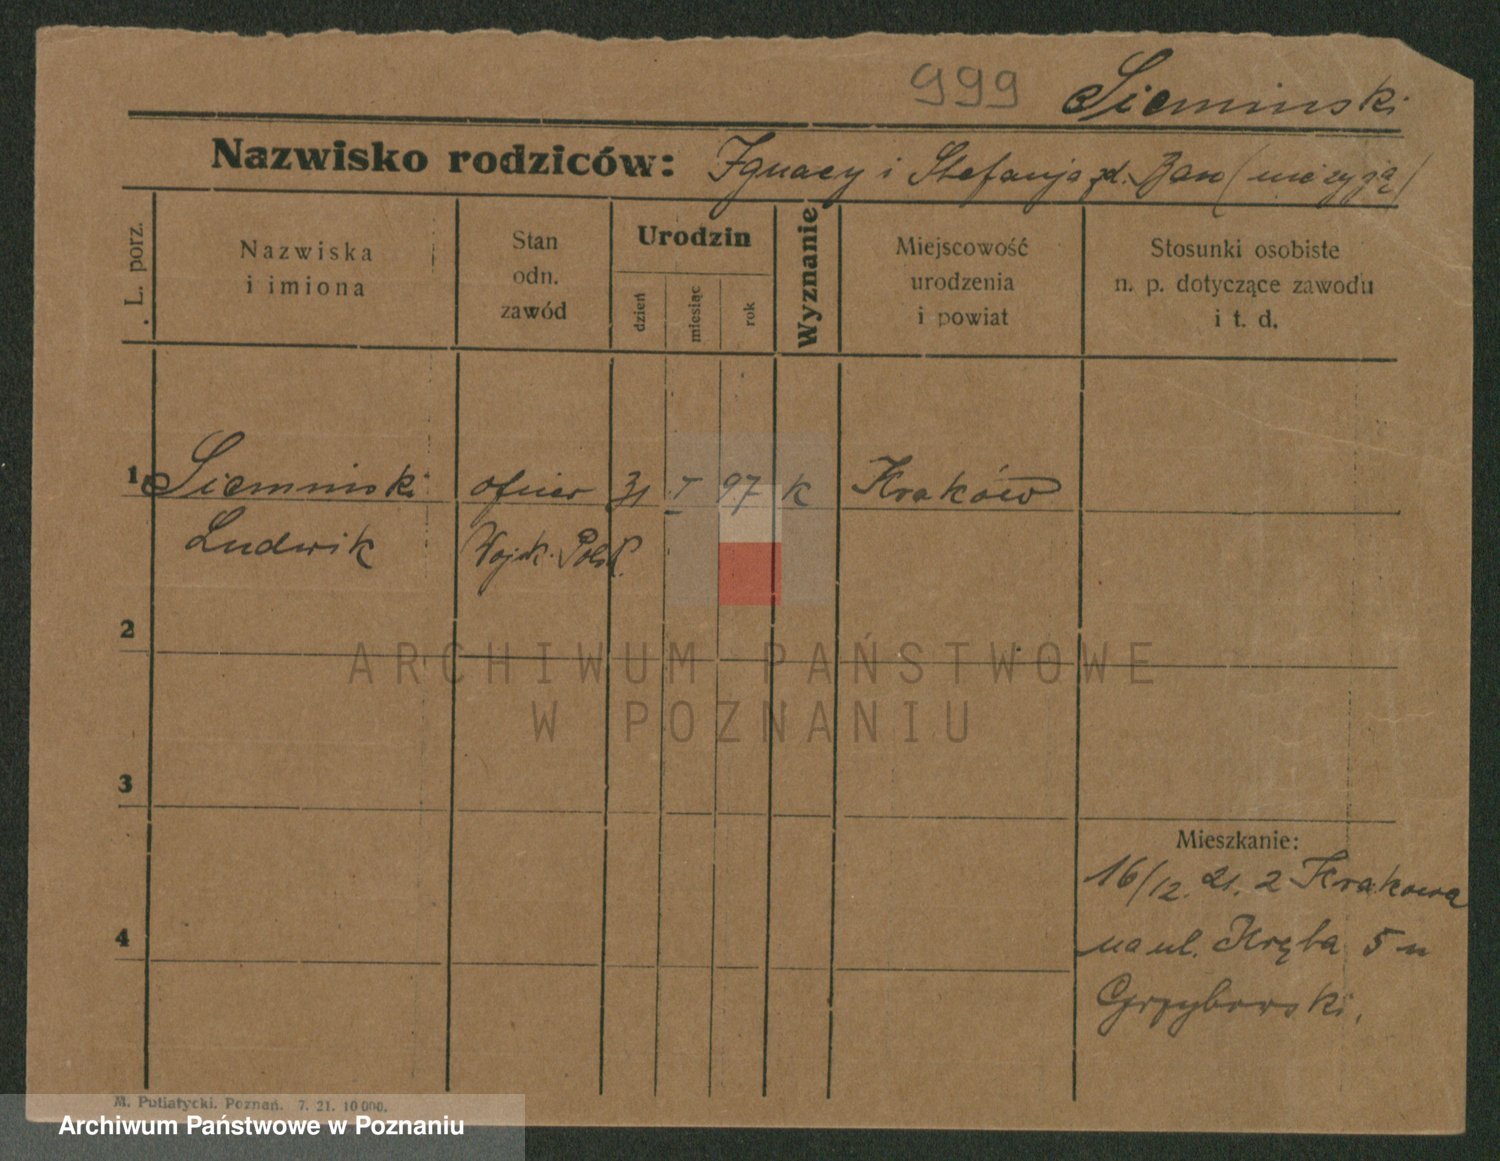 999 Sieminski
Nazwisko rodziców: Ignacy i Stefanja zd. Zan (nie żyją)
L. porz.
Nazwiska
i imiona
Stan
odn.
zawód
Urodzin
dzień
miesiąc
rok
Wyznanie
Miejscowość
urodzenia
i powiat
Stosunki osobiste
n. p. dotyczące zawodu
i t. d.
1 Sieminski oficer 31 I 97 k Kraków
Ludwik Wojsk. Polsk.
2
ARCHIWUM PAŃSTWOWE
W POZNANIU
3
Mieszkanie:
16/12. 21. z Krakowa
4
na ul. Kręta 5 u
Grzyborski.
M. Putiatycki. Poznań. 7. 21. 10 000.
Archiwum Państwowe w Poznaniu